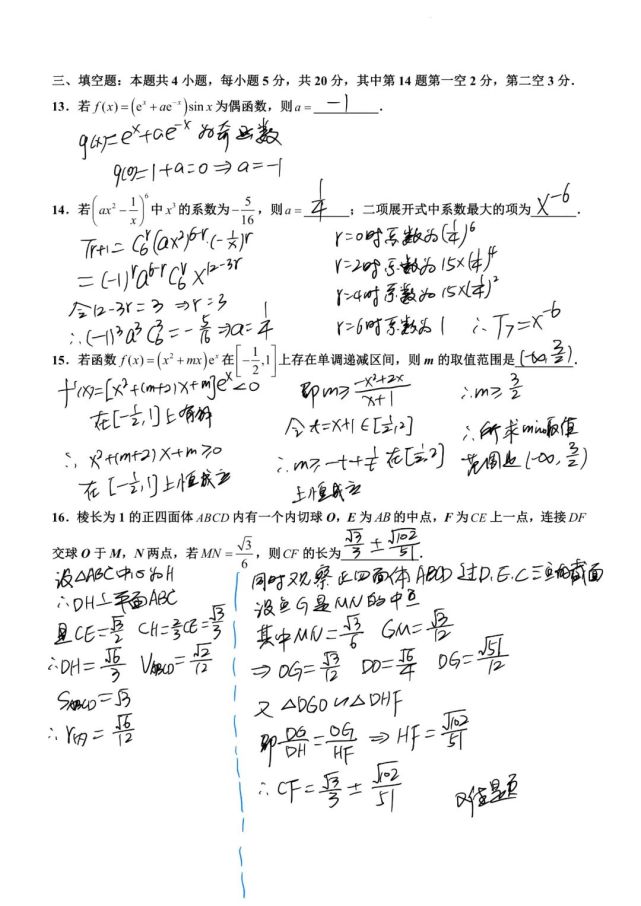 三、填空题：本题共 4 小题，每小题 5 分，共 20 分，其中第 14 题第一空 2 分，第二空 3 分．
13．若 f(x)=(eˣ+ae⁻ˣ)sin x 为偶函数，则 a = -1 ．
g(x)=eˣ+ae⁻ˣ 为奇函数
g(0)=1+a=0⇒a=-1
14．若(ax²-1/x)⁶中 x³ 的系数为-5/16，则 a = 1/4 ；二项展开式中系数最大的项为 x⁻⁶ ．
Tr+1=C₆ʳ(ax²)⁶⁻ʳ·(-1/x)ʳ
=(-1)ʳa⁶⁻ʳC₆ʳ x¹²⁻³ʳ
令12-3r=3 ⇒r=3
∴(-1)³a³C₆³=-5/16⇒a=1/4
r=0时系数为(1/4)⁶
r=2时系数为15×(1/4)⁴
r=4时系数为15×(1/4)²
r=6时系数为1 ∴T₇=x⁻⁶
15．若函数 f(x)=(x²+mx)eˣ 在[-1/2,1]上存在单调递减区间，则 m 的取值范围是 (-∞,3/2) ．
f'(x)=[x²+(m+2)x+m]eˣ<0
在[-1/2,1]上有解
∴x²+(m+2)x+m≥0
在[-1/2,1]上恒成立
即m≥-x²+2x/x+1
令t=x+1∈[1/2,2]
∴m≥-t+1/t在[1/2,2]
上恒成立
∴m≥3/2
∴所求m的取值
范围是(-∞,3/2)
16．棱长为 1 的正四面体 ABCD 内有一个内切球 O，E 为 AB 的中点，F 为 CE 上一点，连接 DF
交球 O 于 M，N 两点，若 MN=√3/6，则 CF 的长为 √3/3±√102/51 ．
设△ABC中心为H
∴DH⊥平面ABC
CE=√3/2 CH=2/3CE=√3/3
∴DH=√6/3 VABCD=√2/12
SABCD=√3
∴r内=√6/12
同时观察正四面体ABCD过D.E.C三点的截面
设点G是MN的中点
其中MN=√3/6 GM=√3/12
⇒OG=√3/12 DO=√6/4 DG=√51/12
又△DGO∽△DHF
即DG/DH=OG/HF⇒HF=√102/51
∴CF=√3/3±√102/51